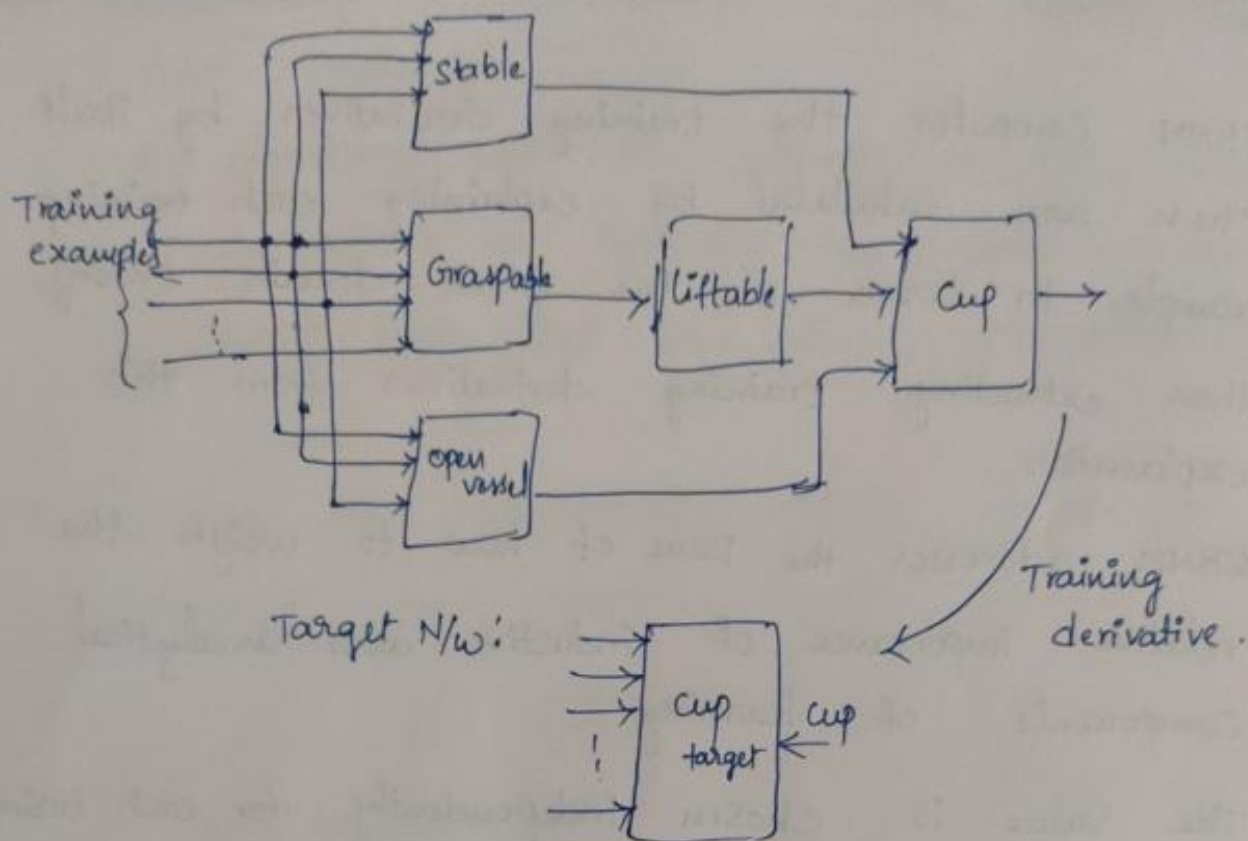 Stable
Training
examples
Graspable
Liftable
Cup
open
vessel
Training
derivative.
Target N/w:
Cup
target
Cup